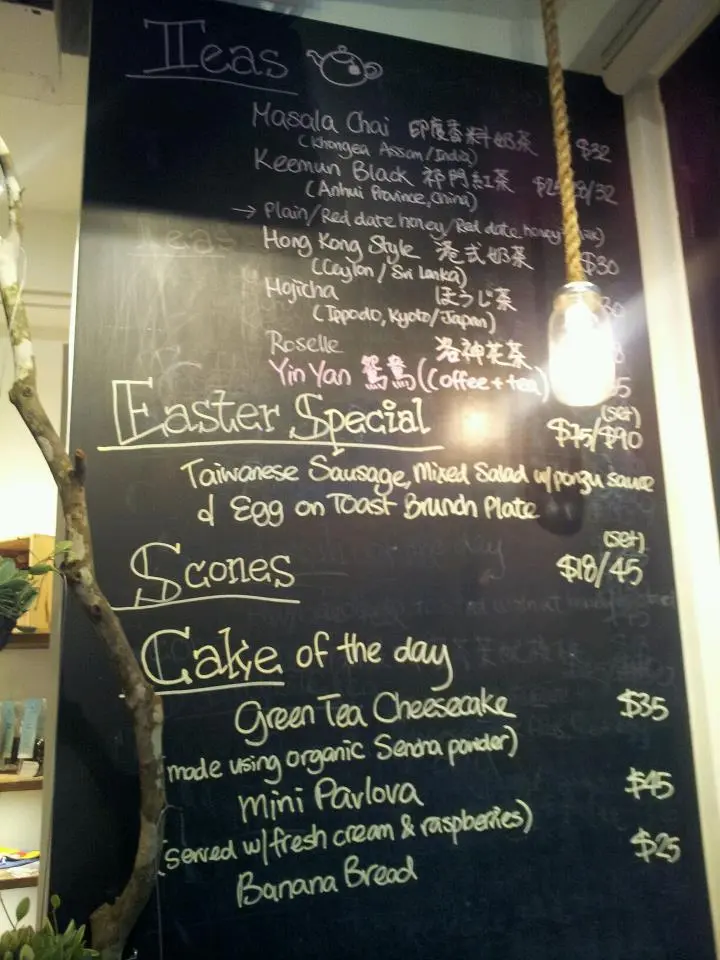 Teas
Masala Chai 印度香料奶茶 $32
(Khongea Assam/India)
Keemun Black 祁門紅茶 /32
(Anhui Province, China)
→ Plain/Red date honey/Red date honey
Hong Kong Style 港式奶茶 $30
(Ceylon/Sri Lanka)
Hojicha ほうじ茶
(Ippodo, Kyoto/Japan)
Roselle 洛神花茶
Yin Yan 鴛鴦 (Coffee + tea)
Easter Special (set)
$75/$90
Taiwanese Sausage, Mixed Salad w/ponzu sauce
& Egg on Toast Brunch Plate
Scones (set)
$18/45
Cake of the day
Green Tea Cheesecake $35
(made using organic Sencha powder)
Mini Pavlova $45
(served w/fresh cream & raspberries)
Banana Bread $25